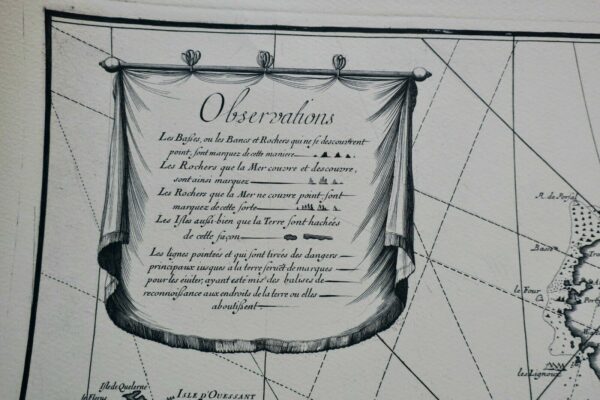 Observations
Les Basses, ou les Bancs et Rochers qui ne se descouvrent
point, sont marquez de cette maniere
Les Rochers que la Mer couvre et descouvre,
sont ainsi marquez
Les Rochers que la Mer ne couvre point, sont
marquez de cette sorte
Les Isles aussi bien que la Terre sont hachées
de cette façon
Les lignes pointées et qui sont tirées des dangers
principaux iusques a la terre servēt de marques
pour les éuiter, ayant esté mis des balises de
reconnoissance aux endroits de la terre ou elles
aboutissent
Basse
le Four
les Lignoux
Isle de Quelerne
ISLE D'OUESSANT